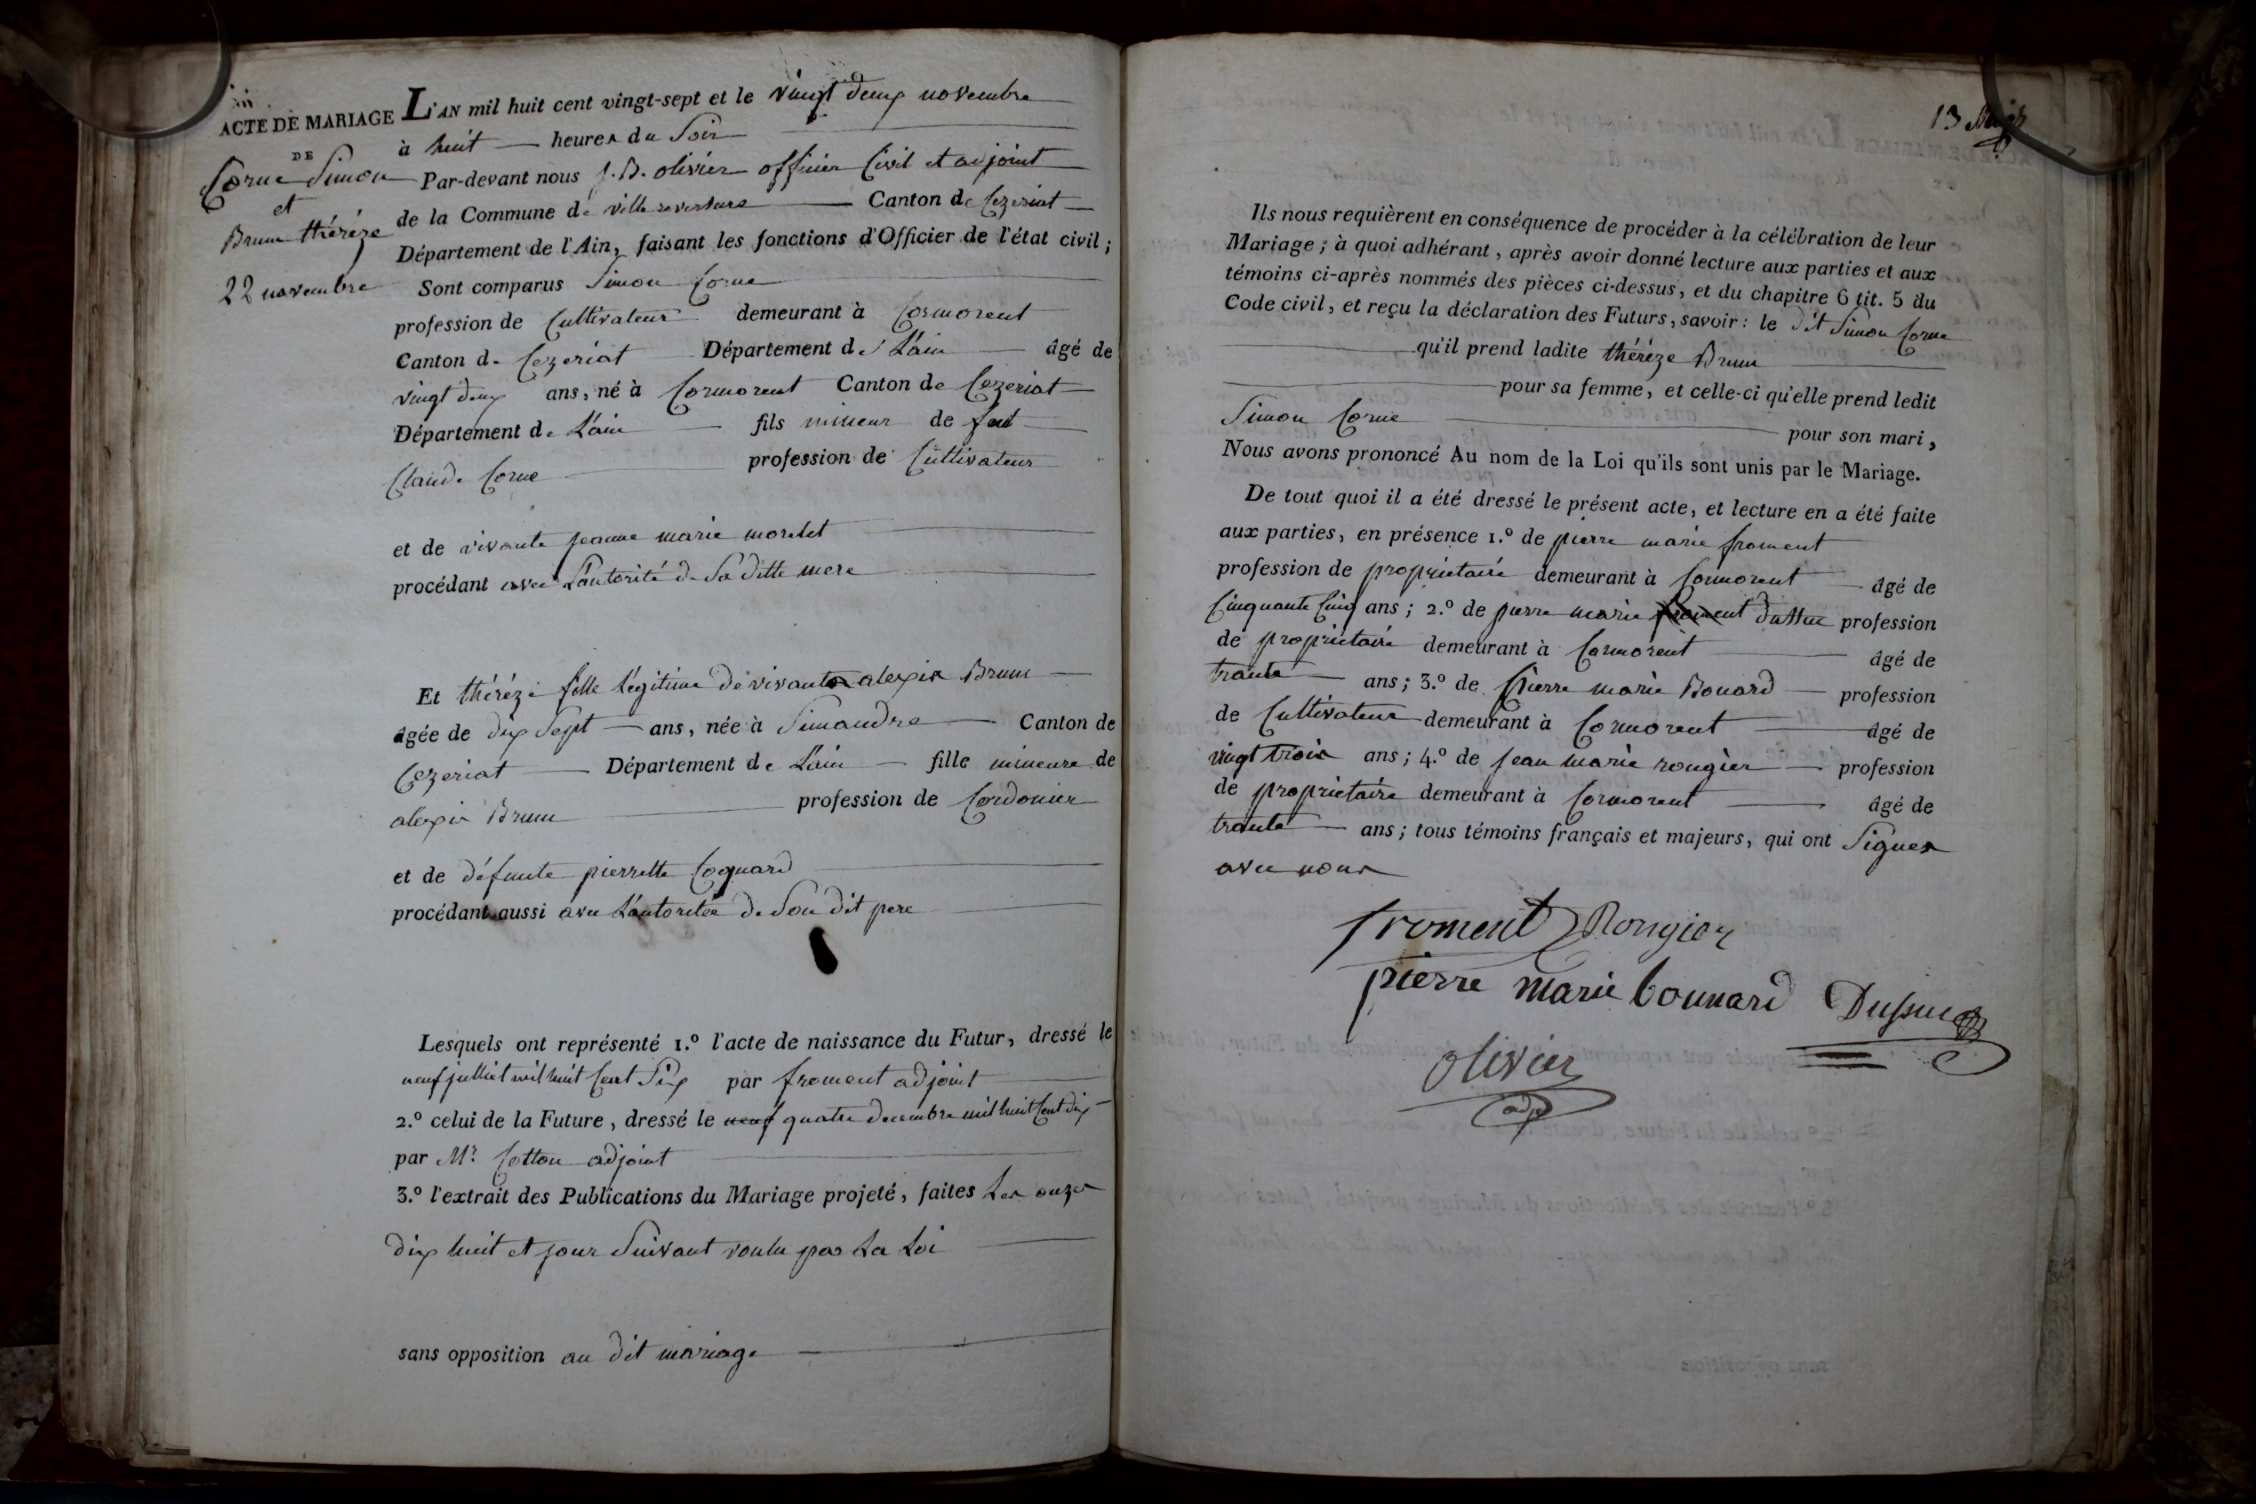 ACTE DE MARIAGE
DE
Corne Simon
et
Brun théréze
22 novembre
L'AN mil huit cent vingt-sept et le vingt deux novembre
à huit heures du Soir
Par-devant nous J. B. olivier officier Civil et adjoint
de la Commune de villereversure Canton de Cezeriat
Département de l'Ain, faisant les fonctions d'Officier de l'état civil ;
Sont comparus Simon Corne
profession de Cultivateur demeurant à Cormorent
Canton de Cezeriat Département de L'ain âgé de
vingt deux ans, né à Cormorent Canton de Cezeriat
Département de L'ain fils mineur de feut
Claude Corne profession de Cultivateur
et de vivante jeanne marie morelet
procédant avec L'autorité de Sa ditte mere
Et thérézé fille Légitime de vivant alexis Brun
âgée de dix Sept ans, née à Simandre Canton de
Cezeriat Département de L'ain fille mineure de
alexis Brun profession de Cordonier
et de défunte pierrette Cognard
procédant aussi avec L'autoritée de Son dit pere
Lesquels ont représenté 1.º l'acte de naissance du Futur, dressé le
neuf julliet mil huit Cent Six par froment adjoint
2.º celui de la Future, dressé le neuf quatre decembre mil huit Cent dix
par Mr Cotton adjoint
3.º l'extrait des Publications du Mariage projeté, faites Les onze
dix huit et jour Suivant voulu par La Loi
sans opposition au dit mariage
13
Ils nous requièrent en conséquence de procéder à la célébration de leur
Mariage ; à quoi adhérant, après avoir donné lecture aux parties et aux
témoins ci-après nommés des pièces ci-dessus, et du chapitre 6 tit. 5 du
Code civil, et reçu la déclaration des Futurs, savoir : le dit Simon Corne
qu'il prend ladite thérèze Brun
pour sa femme, et celle-ci qu'elle prend ledit
Simon Corne pour son mari,
Nous avons prononcé Au nom de la Loi qu'ils sont unis par le Mariage.
De tout quoi il a été dressé le présent acte, et lecture en a été faite
aux parties, en présence 1.º de pierre marie froment
profession de propriétaire demeurant à Cormorent âgé de
Cinquante Cinq ans ; 2.º de pierre marie froment profession
de propriétaire demeurant à Cormorent âgé de
trante ans ; 3.º de Pierre marie Bonard profession
de Cultivateur demeurant à Cormorent âgé de
vingt trois ans ; 4.º de jean marie rougier profession
de propriétaire demeurant à Cormorent âgé de
trante ans ; tous témoins français et majeurs, qui ont Signes
avec nous
froment Rongier
pierre marie bonnard
olivier
adj